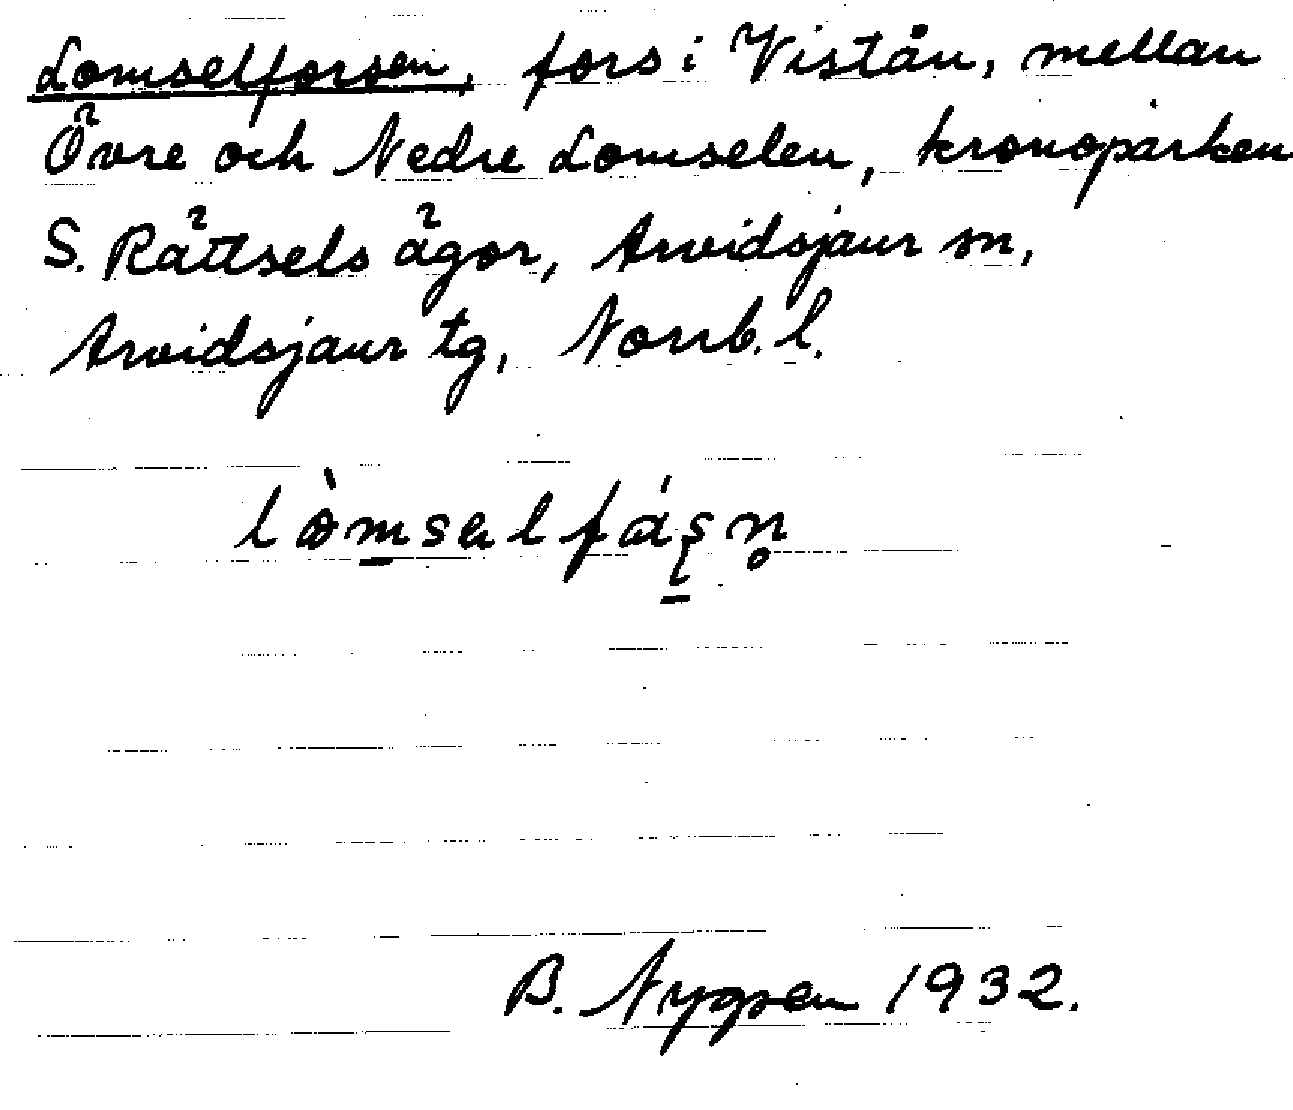 Lomselforsen, fors i Vistån, mellan
Övre och Nedre Lomselen, kronoparken
S. Rättsels ägor, Arvidsjaur sn,
Arvidsjaur tg, Norrb. l.
B. Nygren 1932.